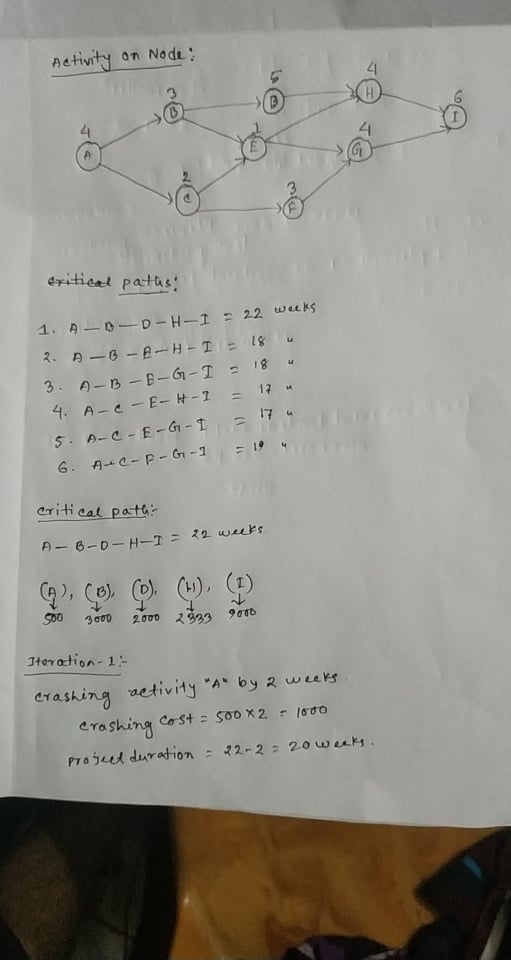 Activity on Node:
4
A
3
B
2
C
5
B
1
E
3
F
4
H
4
G
6
I
critical paths:
1. A — B — D — H — I = 22 weeks
2. A — B — E — H — I = 18 "
3. A — B — E — G — I = 18 "
4. A — C — E — H — I = 17 "
5. A — C — E — G — I = 17 "
6. A — C — F — G — I = 19 "
critical path:-
A — B — D — H — I = 22 weeks.
(A), (B), (D), (H), (I)
500 3000 2000 2333 9000
Iteration-1:-
crashing activity "A" by 2 weeks.
crashing cost = 500 x 2 = 1000
project duration = 22-2 = 20 weeks.